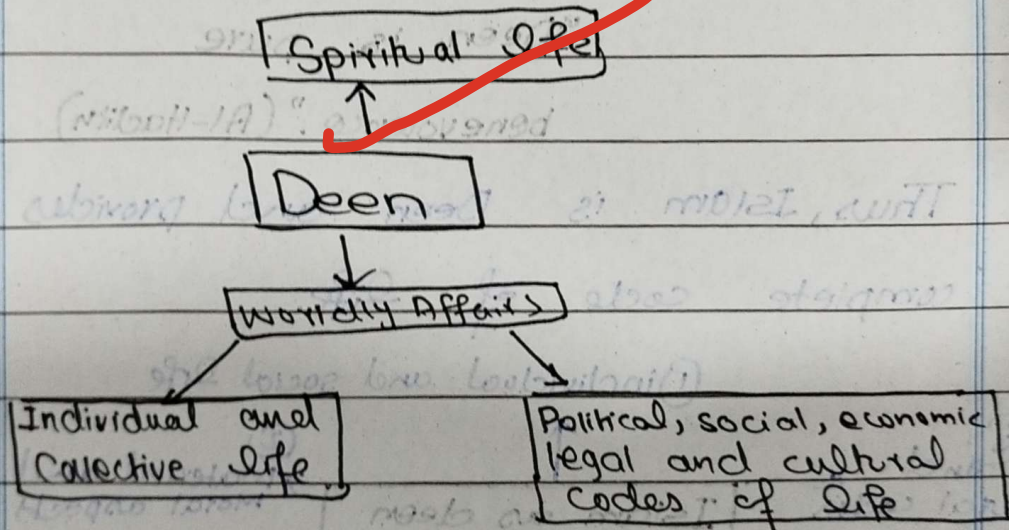 Spiritual life
Deen
Worldly Affairs
Individual and
Calective life
Political, social, economic
legal and cultural
codes of life